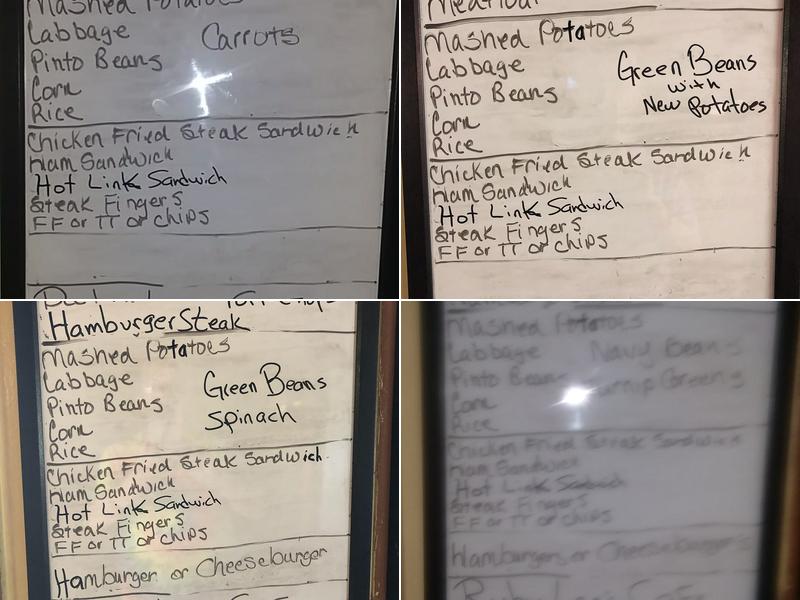 Mashed Potatoes
Labbage
Carrots
Pinto Beans
Corn
Rice
Chicken Fried Steak Sandwich
Ham Sandwich
Hot Link Sandwich
Steak Fingers
FF or TT or chips
Meatloaf
Mashed Potatoes
Labbage
Green Beans
with
New Potatoes
Pinto Beans
Corn
Rice
Chicken Fried Steak Sandwich
Ham Sandwich
Hot Link Sandwich
Steak Fingers
FF or TT or chips
Hamburger Steak
Mashed Potatoes
Labbage
Green Beans
Pinto Beans
Spinach
Corn
Rice
Chicken Fried Steak Sandwich
Ham Sandwich
Hot Link Sandwich
Steak Fingers
FF or TT or CHIPS
Hamburger or Cheeseburger
Mashed Potatoes
Labbage
Navy Beans
Pinto Beans
Greens
Corn
Rice
Chicken Fried Steak Sandwich
Ham Sandwich
Hot Link Sandwich
Steak Fingers
FF or TT or chips
Hamburgers or Cheeseburger's